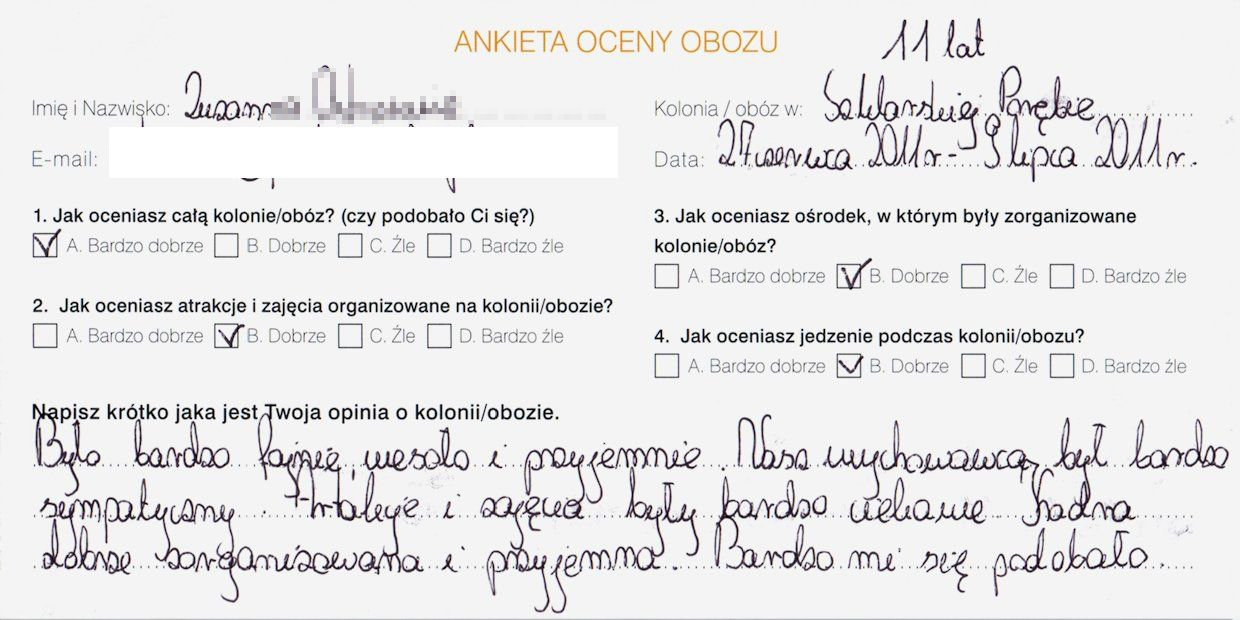 ANKIETA OCENY OBOZU
11 lat
Imię i Nazwisko: Zuzanna
Kolonia / obóz w: Szklarskiej Porębie
E-mail:
Data: 27 czerwca 2011r.- 9 lipca 2011r.
1. Jak oceniasz całą kolonie/obóz? (czy podobało Ci się?)
A. Bardzo dobrze B. Dobrze C. Źle D. Bardzo źle
2. Jak oceniasz atrakcje i zajęcia organizowane na kolonii/obozie?
A. Bardzo dobrze B. Dobrze C. Źle D. Bardzo źle
3. Jak oceniasz ośrodek, w którym były zorganizowane
kolonie/obóz?
A. Bardzo dobrze B. Dobrze C. Źle D. Bardzo źle
4. Jak oceniasz jedzenie podczas kolonii/obozu?
A. Bardzo dobrze B. Dobrze C. Źle D. Bardzo źle
Napisz krótko jaka jest Twoja opinia o kolonii/obozie.
Było bardzo fajnie, wesoło i przyjemnie. Nasz wychowawca był bardzo
sympatyczny. Atrakcje i zajęcia były bardzo ciekawe
dobrze zorganizowana i przyjemna. Bardzo mi się podobało.